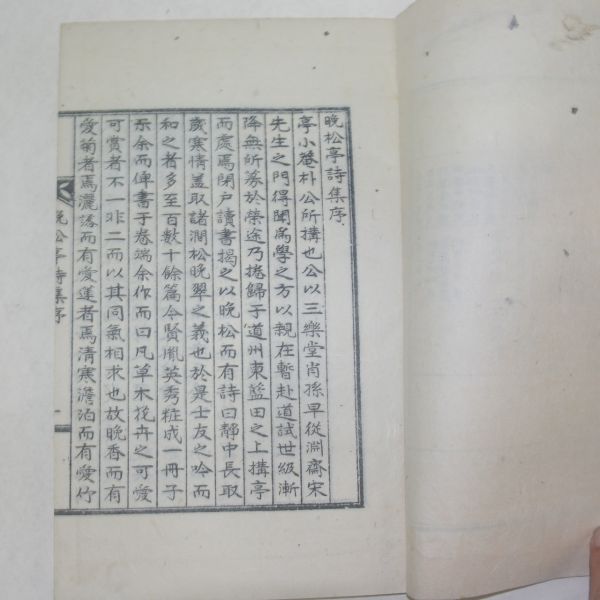 晚松亭詩集序
亭小菴朴公所搆也公以三樂堂肖孫早從淵齋宋
先生之門得聞爲學之方以親在暫赴道試世級漸
降無所募於榮途乃捲歸于道州東藍田之上搆亭
而處焉閉戶讀書揭之以晚松而有詩曰靜中長取
歲寒情盖取諸澗松晚翠之義也於是士友之吟而
和之者多至百數十餘篇今賢胤英秀粧成一冊子
示余而俾書于卷端余作而曰凡草木花卉之可愛
可賞者不一非二而以其同氣相求也故晚香而有
愛菊者焉灑落而有愛蓮者焉清寒澹泊而有愛竹
晚松亭詩集序
一